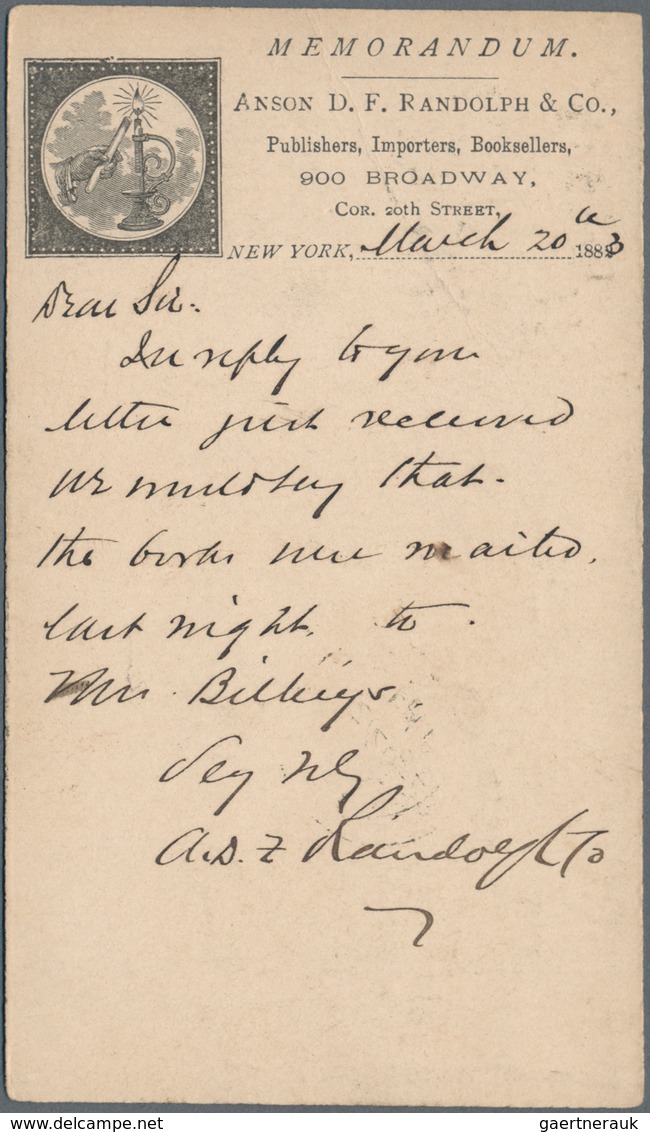 MEMORANDUM.
ANSON D. F. RANDOLPH & CO.,
Publishers, Importers, Booksellers,
900 BROADWAY,
COR. 20th STREET,
NEW YORK, March 20th 1883
Dear Sir.
In reply to your
letter just received
we would say that.
the books were mailed.
last night. to.
Mrs. Billings
Very Trly
A. D. F Randolph & Co
gaertnerauk @ delcampe.net